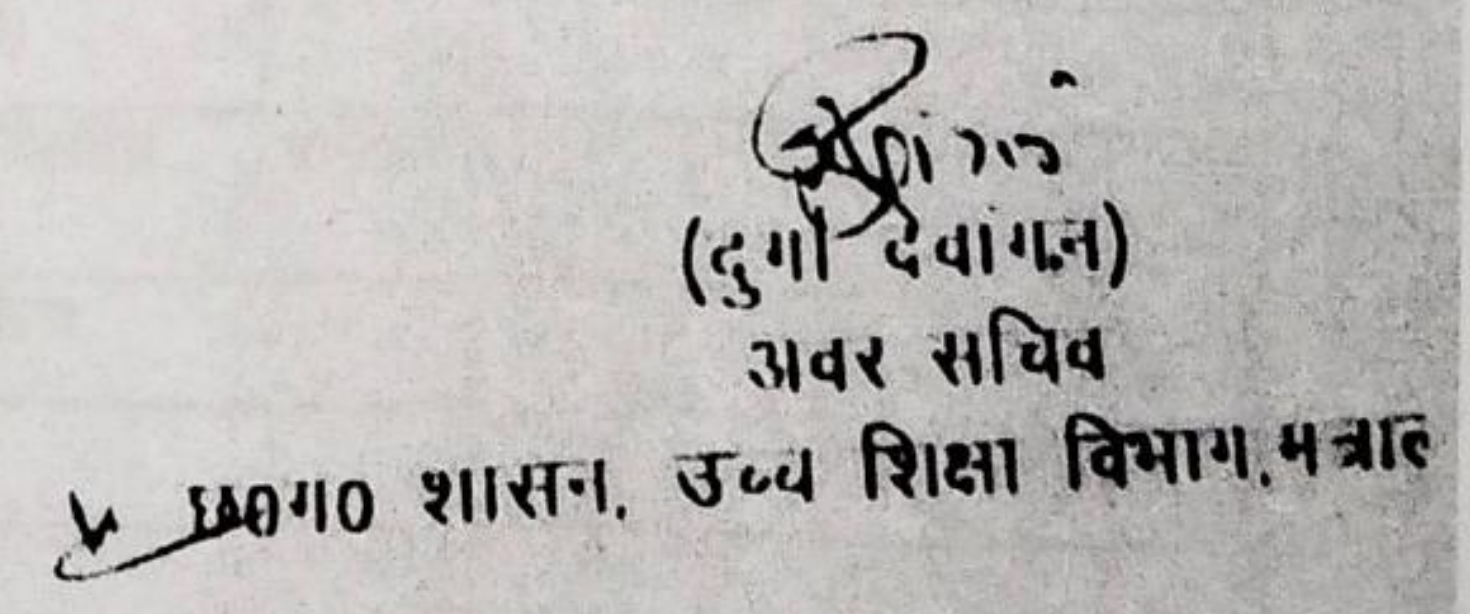 (दुर्गा देवांगन)
अवर सचिव
छ०ग० शासन, उच्च शिक्षा विभाग,